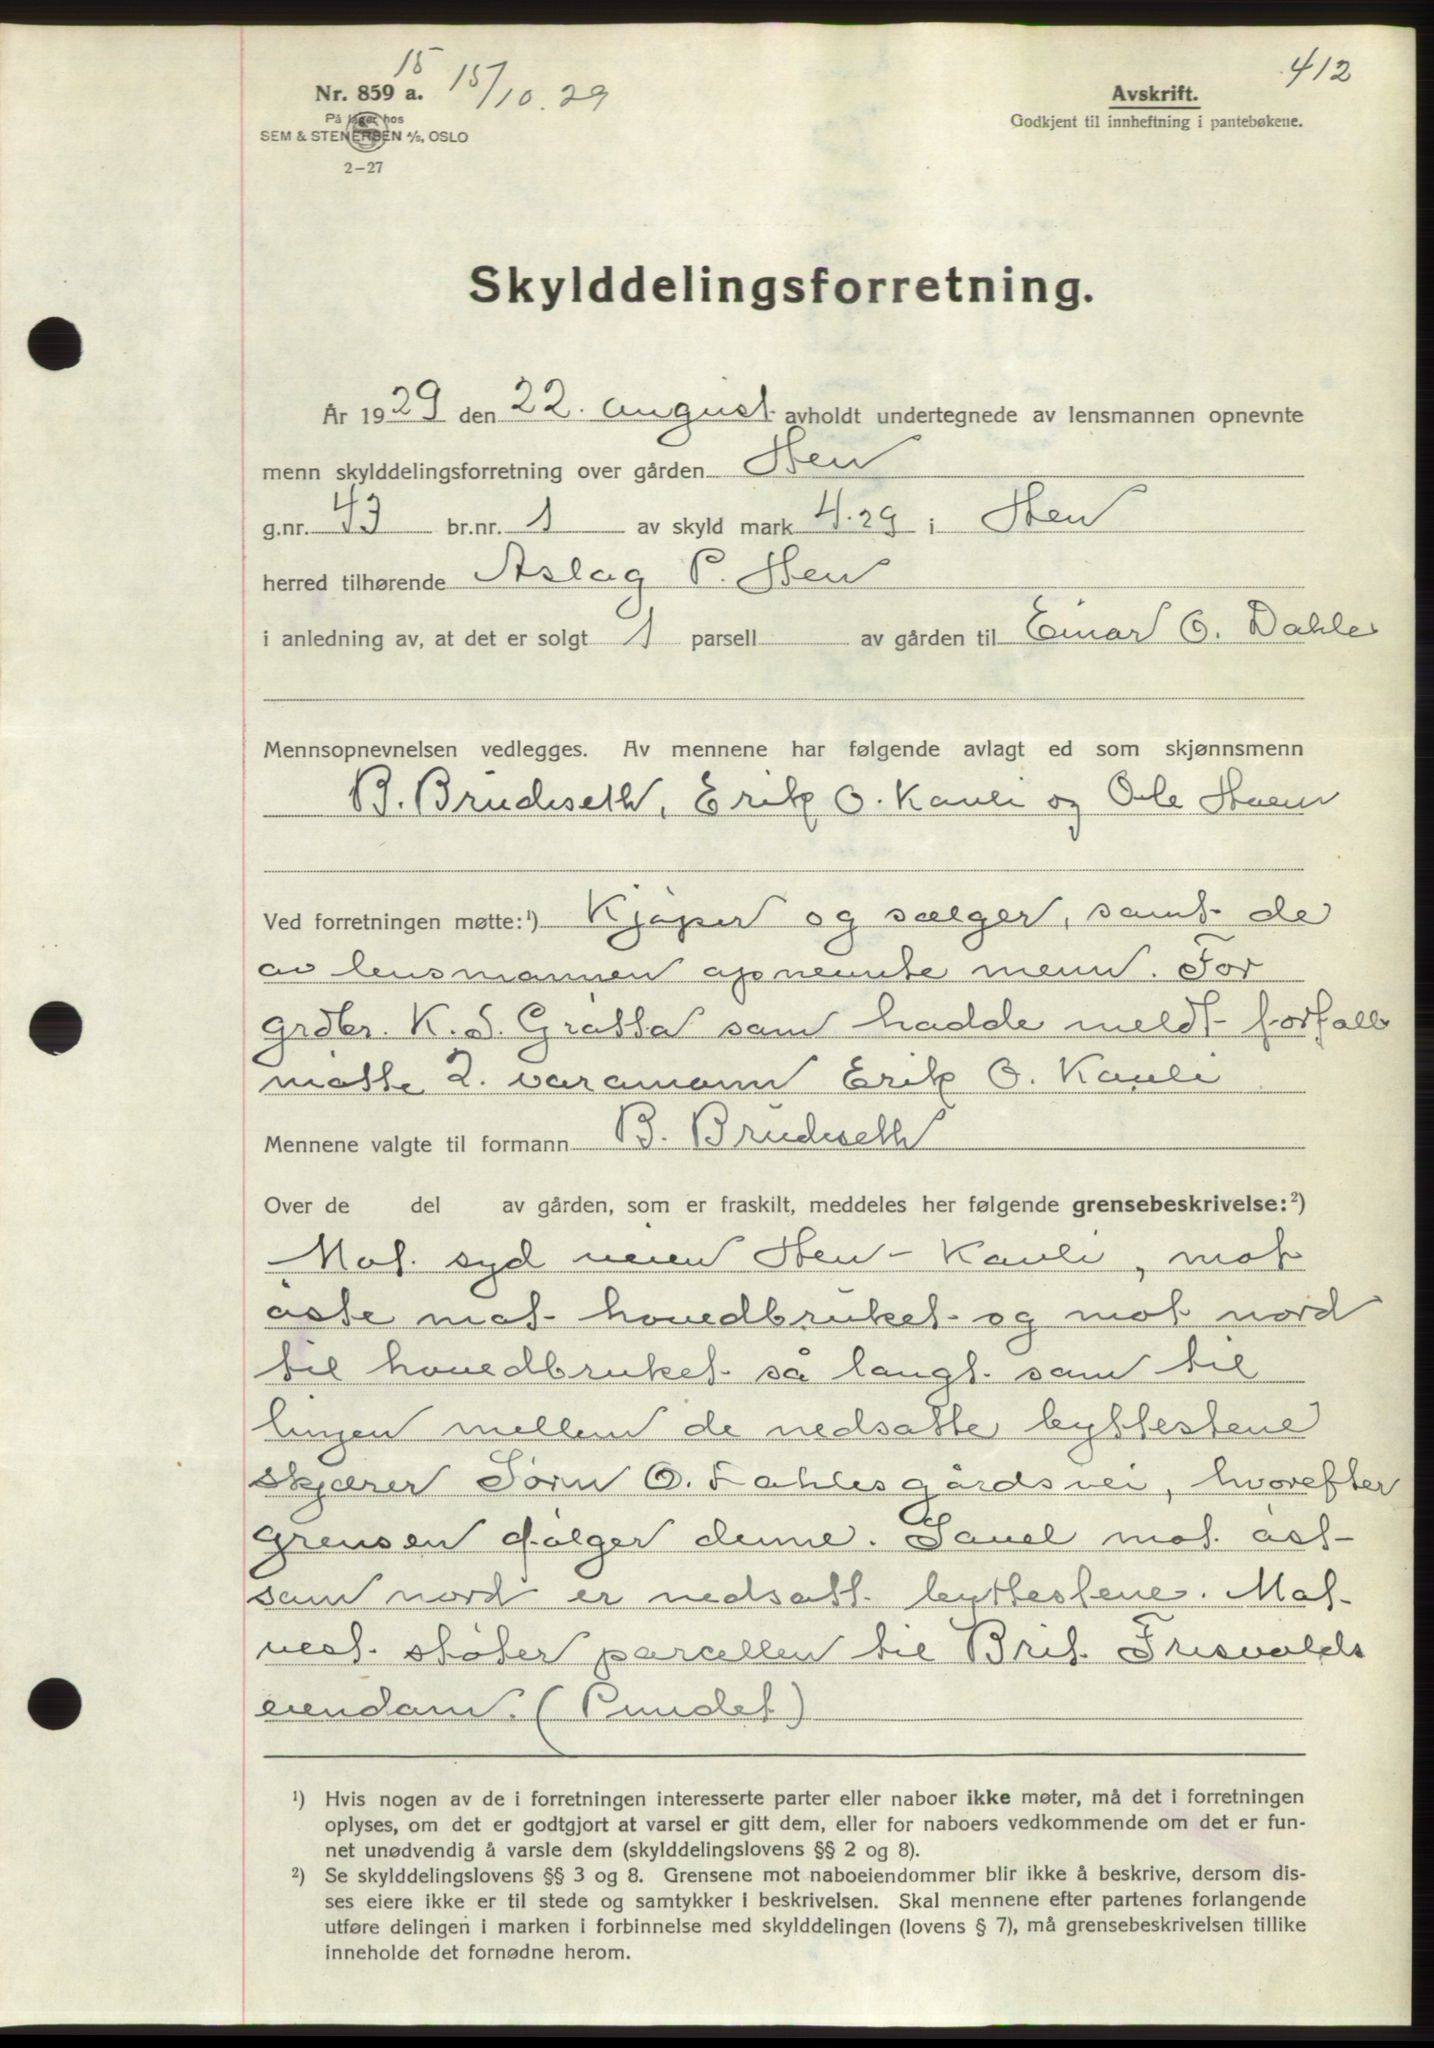 15 15/10.29
412
Nr. 859 a.
På lager hos
SEM & STENERSEN A/S, OSLO
2-27
Avskrift.
Godkjent til innheftning i pantebøkene.
Skylddelingsforretning.
År 1929 den 22. august avholdt undertegnede av lensmannen opnevnte
menn skylddelingsforretning over gården Hen
g.nr. 43 br.nr. 1 av skyld mark 4.29 i Hen
herred tilhørende Aslag P. Hen
i anledning av, at det er solgt 1 parsell av gården til Einar O. Dahle
Mennsopnevnelsen vedlegges. Av mennene har følgende avlagt ed som skjønnsmenn
B. Brudeseth, Erik O. Kavli og Ole Hoem
Ved forretningen møtte:¹) Kjøper og sælger, samt de
av lensmannen opnevnte menn. For
grdbr. K. S. Gråtta som hadde meldt forfall
møtte 2. varamann Erik O. Kavli
Mennene valgte til formann B. Brudeseth
Over de del av gården, som er fraskilt, meddeles her følgende grensebeskrivelse:²)
Mot syd veien Hen - Kavli, mot
øste mot hovedbruket og mot nord
til hovedbruket så langt som til
linjen mellem de nedsatte byttestene
skjærer Sørn O. Dahlesgårdsvei, hvorefter
grensen følger denne. Såvel mot øst
som nord er nedsatt byttestene. Mot
vest støter parcellen til Brit Frisvolds
eiendom. (Pundet)
¹) Hvis nogen av de i forretningen interesserte parter eller naboer ikke møter, må det i forretningen
oplyses, om det er godtgjort at varsel er gitt dem, eller for naboers vedkommende om det er fun-
net unødvendig å varsle dem (skylddelingslovens §§ 2 og 8).
²) Se skylddelingslovens §§ 3 og 8. Grensene mot naboeiendommer blir ikke å beskrive, dersom dis-
ses eiere ikke er til stede og samtykker i beskrivelsen. Skal mennene efter partenes forlangende
utføre delingen i marken i forbinnelse med skylddelingen (lovens § 7), må grensebeskrivelsen tillike
inneholde det fornødne herom.